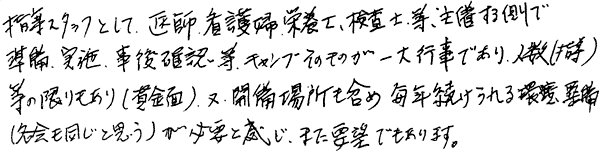 指導スタッフとして、医師、看護婦、栄養士、検査士、等、主催する側で
準備、実施、事後確認、等、キャンプそのものが一大行事であり、人数(指導)
等の限りもあり(資金面)、又、開備場所も含め毎年続けられる環境整備
(各会も同じと思う)が必要と感じ、また要望でもあります。